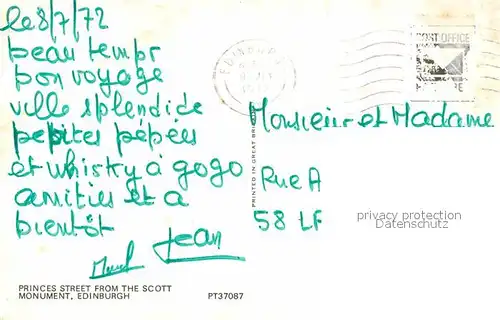 le 8/7/72
beau temps
bon voyage
ville splendide
petites pépées
et whisky à gogo
amitiés et a
bientôt
Jean
PRINCES STREET FROM THE SCOTT
MONUMENT, EDINBURGH
PT37087
PRINTED IN GREAT BRITAIN
EDINBURGH
POST OFFICE
Monsieur et Madame
Rue A
58 LF
privacy protection
Datenschutz